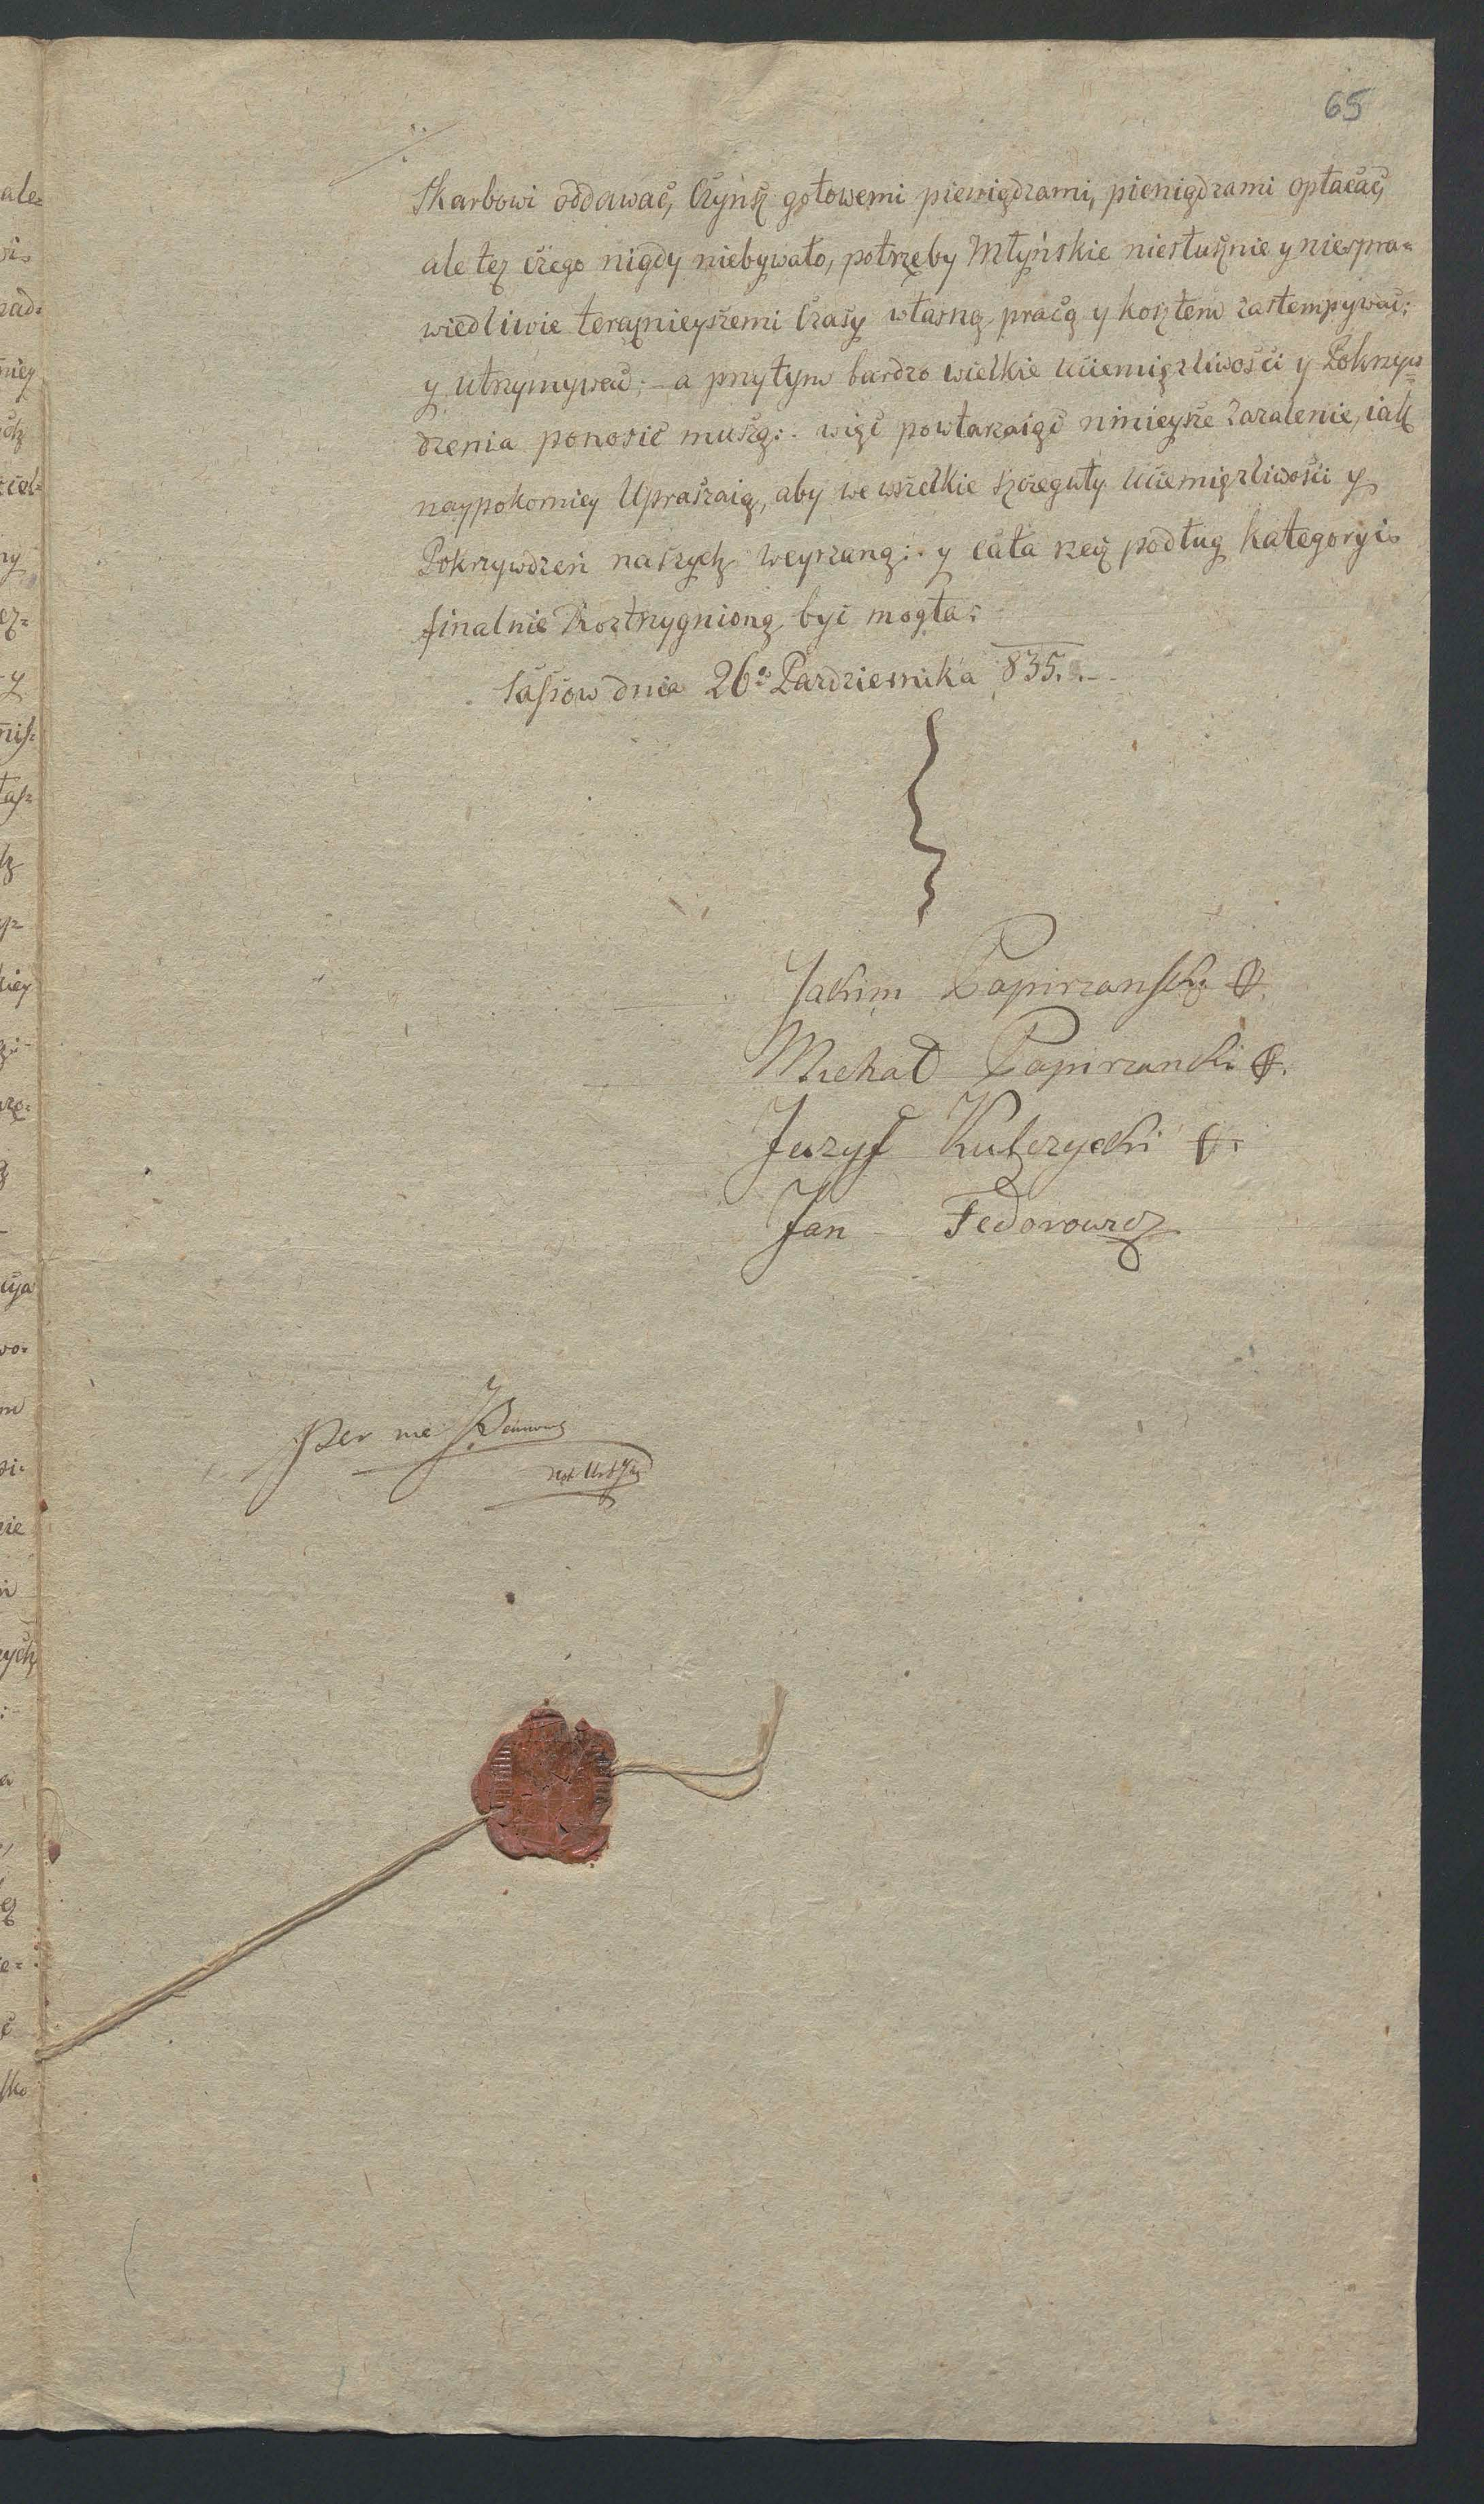 65
Skarbowi oddawać, Czynsz gotowemi pieniądzami, pieniądzami opłacać,
ale też czego nigdy niebywało, potrzeby Młyńskie niesłusznie y niespra=
wiedliwie teraznieyszemi Czasy własną pracą y kosztem zastempywać;
y utrzymywać; – a przytym bardzo wielkie uciemiężliwości y Pokrzyw=
dzenia ponosić muszą: więc powtarzaiąc ninieysze Zażalenie, iak
naypokorniey Upraszaią, aby we wszelkie szczeguły uciemiężliwości y
Pokrzywdzeń naszych weyrzaną: y cała rzecz podług kategoryi
finalnie Roztrzygnioną być mogła:
Sassow dnia 26º Pazdziernika 835.
Jakim Papirzanski
Michał Papirzanski
Juzyf Kulczycki
Jan Fedorowicz
Per me
ale=
zad=
niey
kiey
cya
wo=
nie
zych
sko